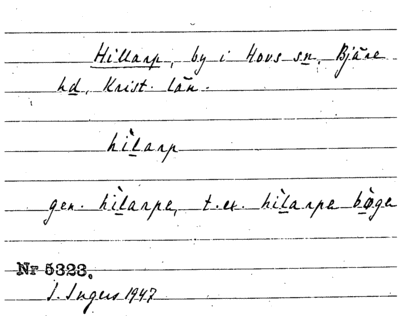 Hillarp, by i Hovs sn, Bjäre
hd, Krist. län.
hìlarp
gen. hìlarpa, t. ex. hìlarpa bø̀ga
Nr 5323.
I. Ingers 1947